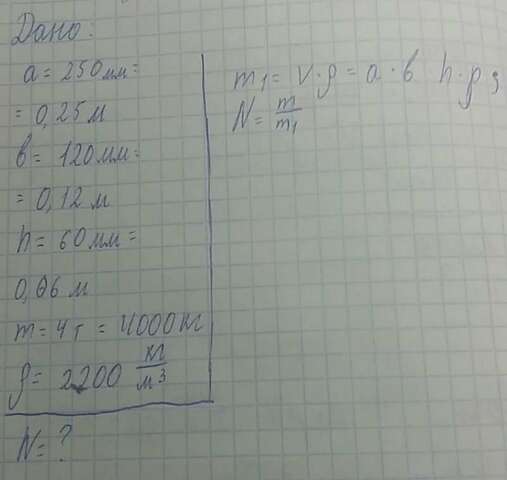 Дано:
a = 250 мм =
= 0,25 м
в = 120 мм =
= 0,12 м
h = 60 мм =
0,06 м
m = 4 т = 4000 кг
ρ = 2200 кг/м³
N = ?
m₁ = V · ρ = a · в h · ρ ;
N = m/m₁